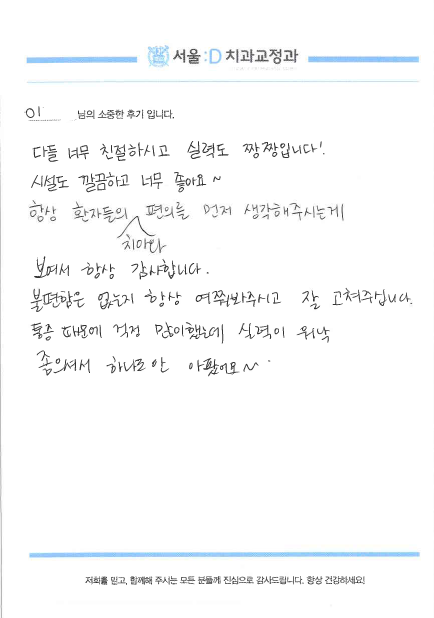 서울:D 치과교정과
이 님의 소중한 후기 입니다.
다들 너무 친절하시고 실력도 짱짱입니다!
시설도 깔끔하고 너무 좋아요~
항상 환자들의 편의를 먼저 생각해주시는게
치아와
보여서 항상 감사합니다.
불편함은 없는지 항상 여쭤봐주시고 잘 고쳐주십니다.
통증 때문에 걱정 많이했는데 실력이 워낙
좋으셔서 하나도 안 아팠어요~
저희를 믿고, 함께해 주시는 모든 분들께 진심으로 감사드립니다. 항상 건강하세요!